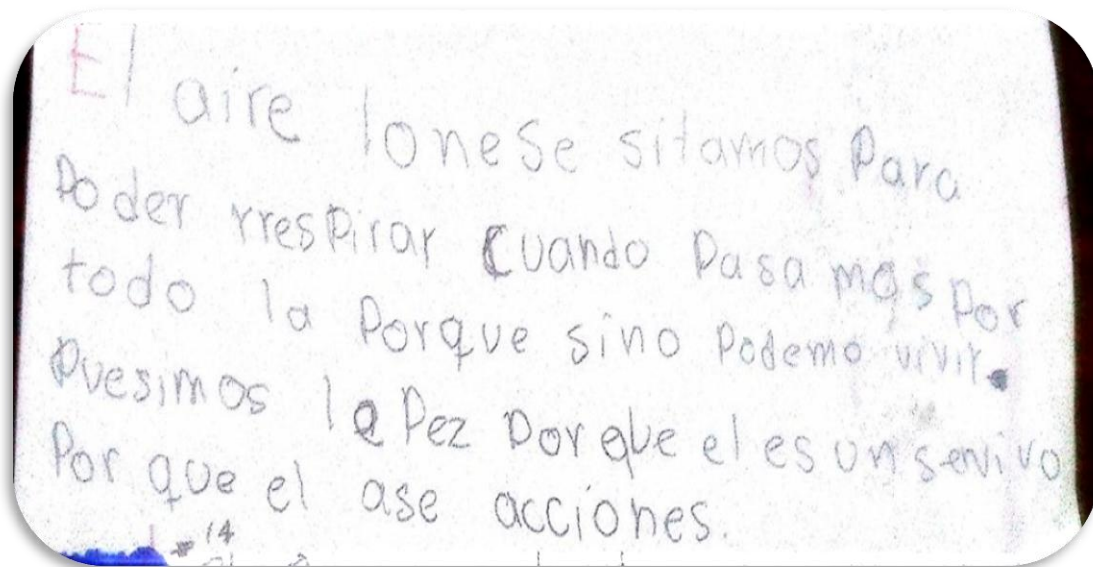 El aire lonese sitamos Para
Poder rrespirar Cuando Pasa mas Por
todo la Porque sino Podemo vivir.
Puesimos le Pez Por que el es un senivo
Por que el ase acciones.
14